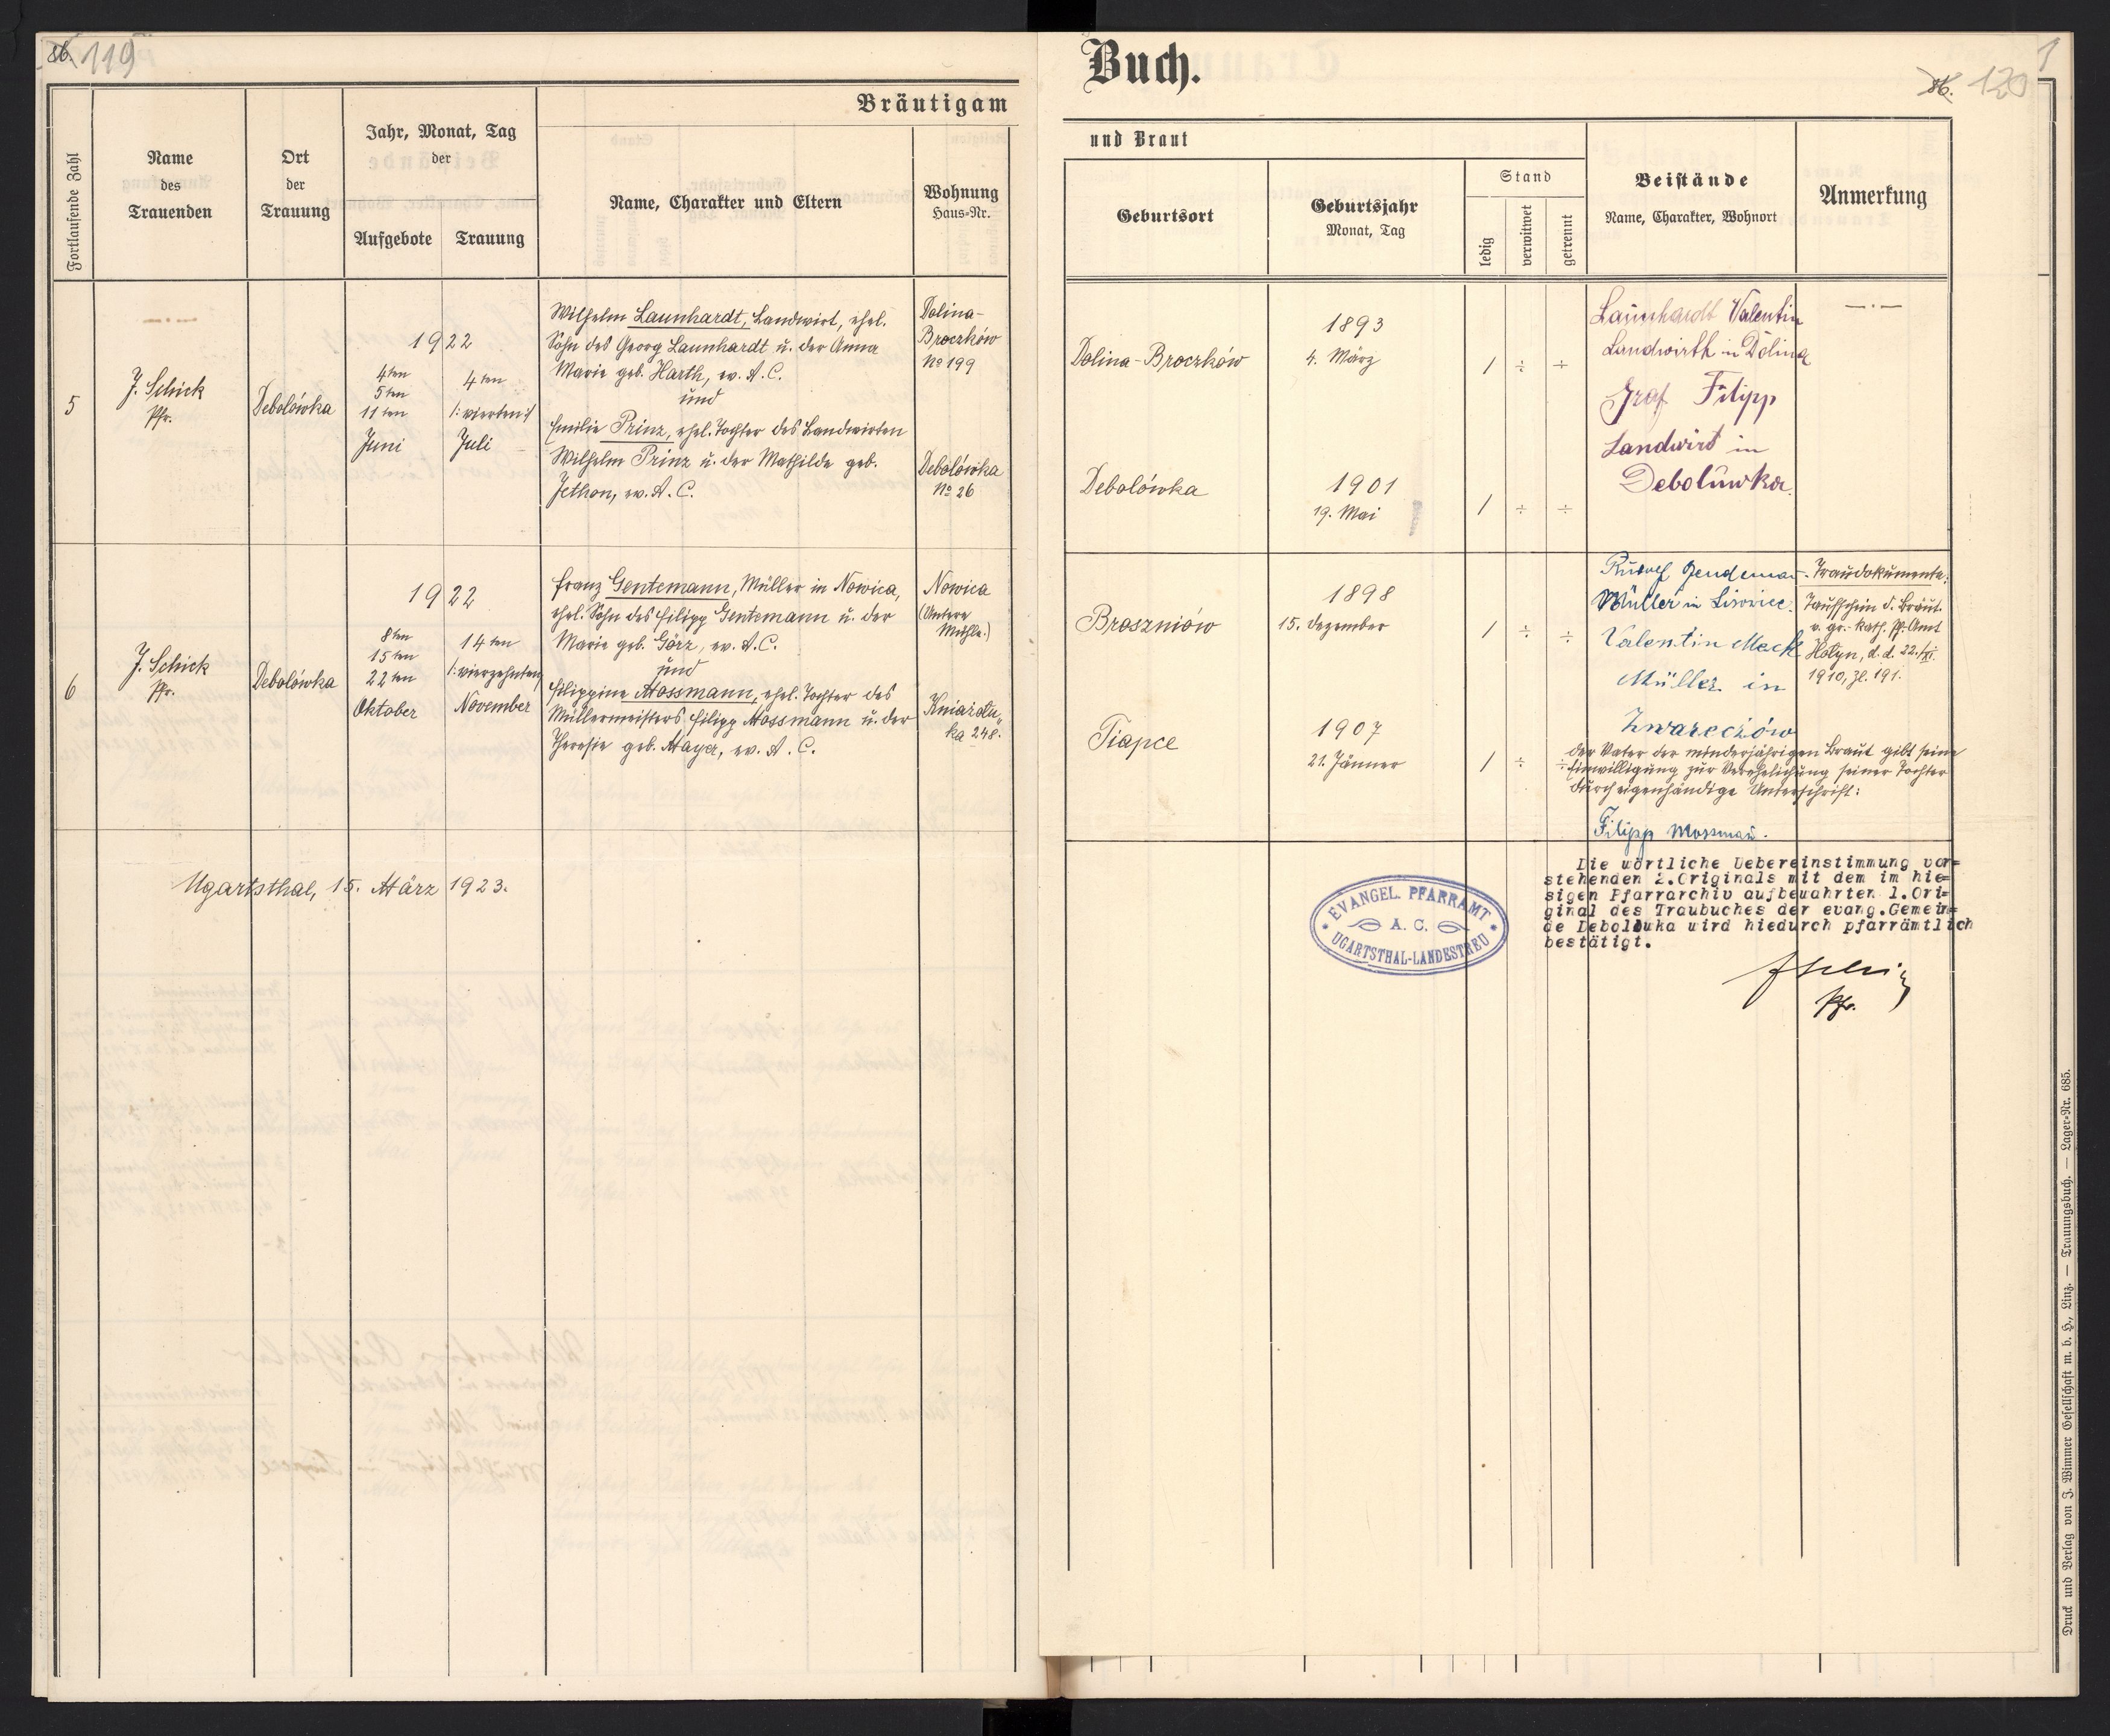 119
Bräutigam
Fortlaufende Zahl
Name
des
Trauenden
Ort
der
Trauung
Jahr, Monat, Tag
der
Aufgebote
Trauung
Name, Charakter und Eltern
Wohnung
Haus-Nr.
5
J. Schick
Pfr.
Debolówka
1922
4ten
5ten
11ten
Juni
4ten
/:vierten:/
Juli
Wilhelm Launhardt, Landwirt, ehel.
Sohn des Georg Launhardt u. der Anna
Marie geb. Harth, ev. A. C.
und
Emilie Prinz, ehel. Tochter des Landwirten
Wilhelm Prinz u. der Mathilde geb.
Jethon, ev. A. C.
Dolina-
Broczków
No 199
Debolówka
No 26
6
J. Schick
Pfr.
Debolówka
1922
8ten
15ten
22ten
Oktober
14ten
/:vierzehnten
November
Franz Gentemann, Müller in Nowica,
ehel. Sohn des Filipp Gentemann u. der
Marie geb. Görz, ev. A. C.
und
Filippine Mossmann, ehel. Tochter des
Müllermeisters Filipp Mossmann u. der
Theresie geb. Mayer, ev. A. C.
Nowica
(Untere
Mühle.)
Kniazolu„
ka 248.
Ugartsthal, 15. März 1923.
Buch.
86. 120
1
und Braut
Geburtsort
Geburtsjahr
Monat, Tag
Stand
ledig
verwitwet
getrennt
Beistände
Name, Charakter, Wohnort
Anmerkung
Dolina-Broczków
1893
4. März
1 ÷ ÷
Launhardt Valentin
Landwirth in Dolina
Graf Filipp
Landwirt in
Debolúwka
— · —
Debolówka
1901
19. Mai
1 ÷ ÷
Broszniów
1898
15. Dezember
1 ÷ ÷
Rudolf Gendeman
Müller in Lisowiec.
Valentin Meck
Müller in
Zwareczów
Traudokumente:
Taufschein d. Bräut.
v. gr.-kath. Pf.-Amt
Hołyn, d.d. 22./XI.
1910, Zl. 191.
Tiapce
1907
21. Jänner
1 ÷ ÷
Der Vater der minderjährigen Braut gibt seine
Einwilligung zur Verehelichung seiner Tochter
durch eigenhändige Unterschrift:
Filipp Mossman.
Die wörtliche Uebereinstimmung vor=
stehenden 2.Originals mit dem im hie=
sigen Pfarrarchiv aufbewahrten 1.Ori=
ginal des Traubuches der evang.Gemein=
de Debolowka wird hiedurch pfarrämtlich
bestätigt.
EVANGEL. PFARRAMT
A. C.
UGARTSTHAL-LANDESTREU
Pfr.
Druck und Verlag von J. Wimmer Gesellschaft m. b. H., Linz. — Trauungsbuch. — Lager-Nr. 685.